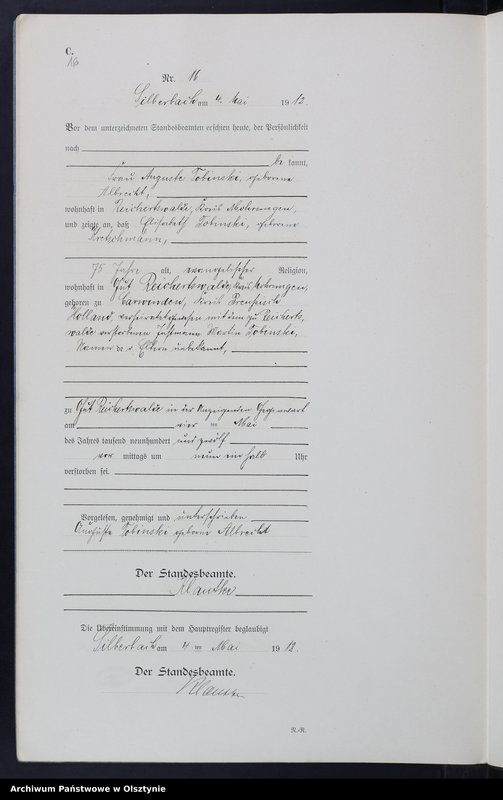 C.
16
Nr. 16
Silberbach am 4. Mai 1912.
Vor dem unterzeichneten Standesbeamten erschien heute, der Persönlichkeit
nach
be kannt,
Frau Auguste Tobinski, geborene
Albrecht,
wohnhaft in Reichertswalde, Kreis Mohrungen,
und zeigte an, daß Elisabeth Tobinski, geborene
Kretschmann,
75 Jahre alt, evangelischer Religion,
wohnhaft in Gut Reichertswalde, Kreis Mohrungen,
geboren zu Carwinden, Kreis Preußisch
Holland, verheiratet gewesen mit dem zu Reicherts-
walde verstorbenen Instmann Martin Tobinski,
Namen der Eltern unbekannt,
zu Gut Reichertswalde in der Anzeigenden Gegenwart
am vier ten Mai
des Jahres tausend neunhundert und zwölf
vor mittags um neun ein halb Uhr
verstorben sei.
Vorgelesen, genehmigt und unterschrieben
Auguste Tobinski geborene Albrecht
Der Standesbeamte.
Klautke
Die Übereinstimmung mit dem Hauptregister beglaubigt
Silberbach am 4 ten Mai 1912.
Der Standesbeamte.
Klautke
R.-R.
Archiwum Państwowe w Olsztynie